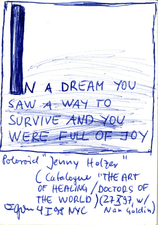 IN A DREAM YOU
SAW A WAY TO
SURVIVE AND YOU
WERE FULL OF JOY
Polaroid "Jenny Holzer"
(Catalogue "THE ART
OF HEALING / DOCTORS OF
THE WORLD) (27 37, w/
4 I 98 NYC Nan Goldin)